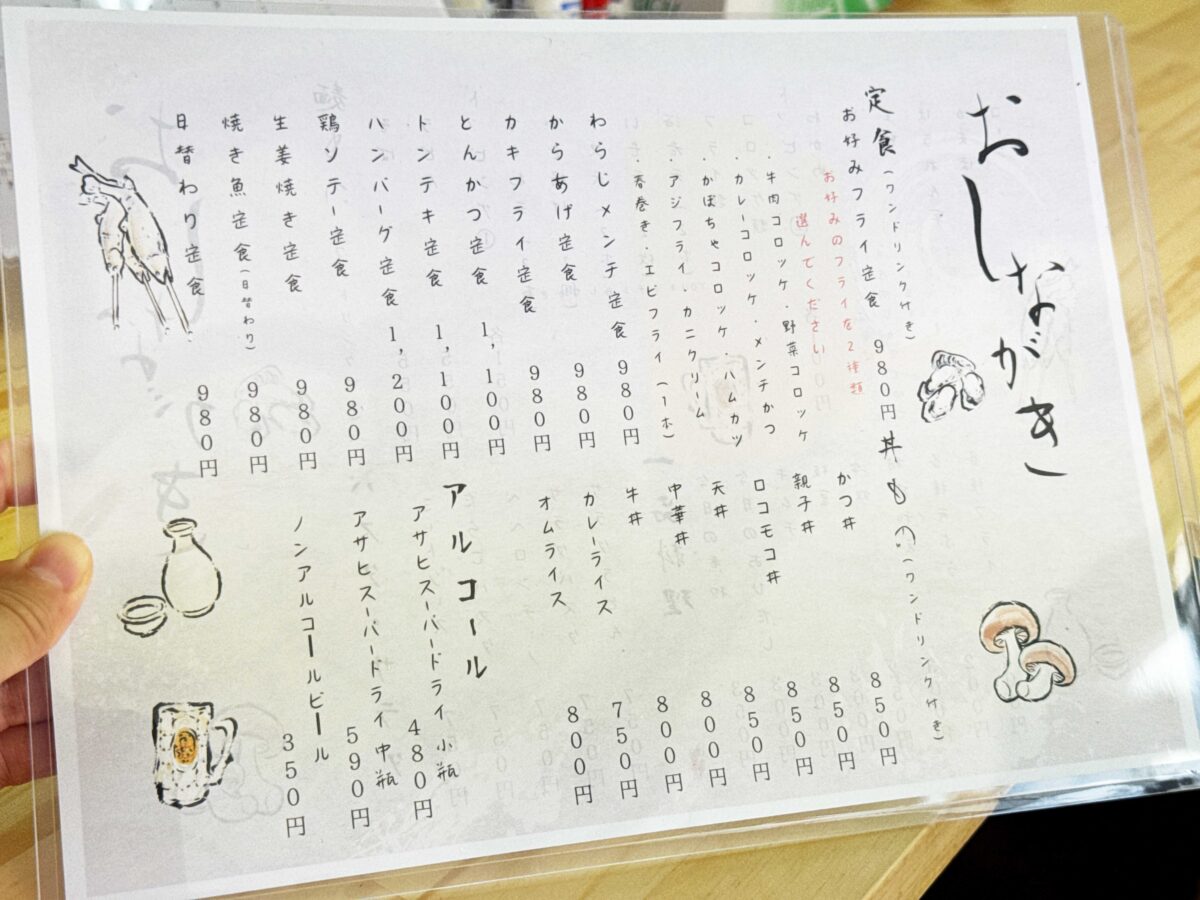 おしながき
定食(ワンドリンク付き)
お好みフライ定食 980円
お好みのフライを2種類
選んでください
・牛肉コロッケ・野菜コロッケ
・カレーコロッケ・メンチかつ
・かぼちゃコロッケ・ハムカツ
・アジフライ・カニクリーム
・春巻き・エビフライ(一本)
わらじメンチ定食 980円
からあげ定食 980円
カキフライ定食 980円
とんかつ定食 1,100円
トンテキ定食 1,100円
ハンバーグ定食 1,200円
鶏ソテー定食 980円
生姜焼き定食 980円
焼き魚定食(日替わり) 980円
日替わり定食 980円
丼もの(ワンドリンク付き)
かつ丼 850円
親子丼 850円
ロコモコ丼 850円
天丼 850円
中華丼 800円
牛丼 800円
カレーライス 750円
オムライス 800円
アルコール
アサヒスーパードライ 小瓶 480円
アサヒスーパードライ 中瓶 590円
ノンアルコールビール 350円